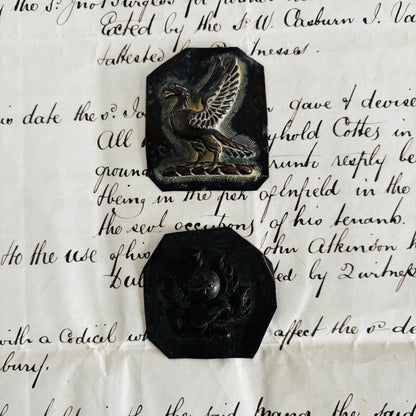 by the sd. Jno Sturges for
Ected by the sd. W. Casburn I. Va
lattested by Witnesses.
is date the sd. Jo gave & devise
All yhold Cottes in
groun runto resply be
tbeing in the psh of Enfield in the
the sevl. occupons of his tenants.
to the use of his John Atkinson
Dul ed by 2 witness
with a Codicil wh affect the sd. de
bury.
the said